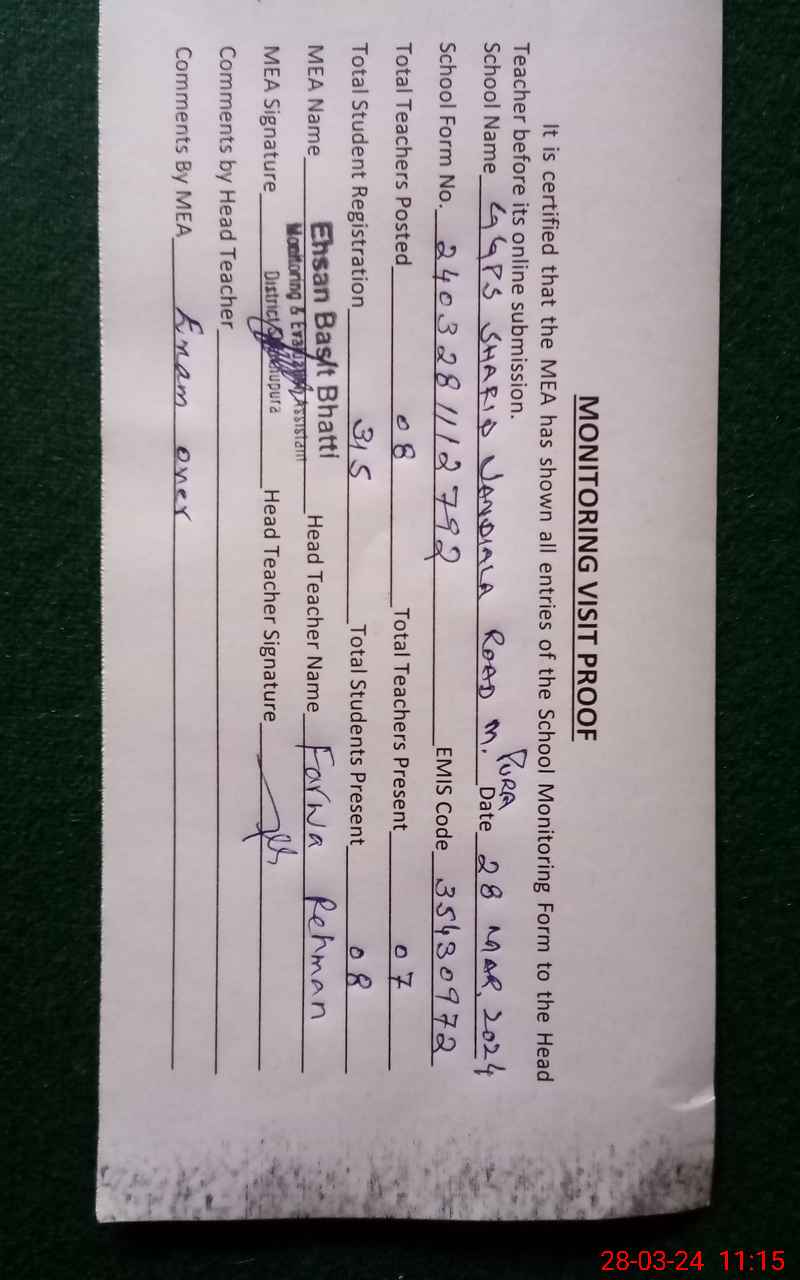 MONITORING VISIT PROOF
It is certified that the MEA has shown all entries of the School Monitoring Form to the Head
Teacher before its online submission.
School Name GGPS SHARIQ JANDIALA ROAD M. PURA Date 28 MAR, 2024
School Form No. 2403281112792 EMIS Code 35430972
Total Teachers Posted 08 Total Teachers Present 07
Total Student Registration 315 Total Students Present 08
MEA Name Ehsan Basit Bhatti Head Teacher Name Farwa Rehman
Monitoring & Evaluation Assistant
MEA Signature District Sheikhupura Head Teacher Signature
Comments by Head Teacher
Comments By MEA Enam over
28-03-24 11:15